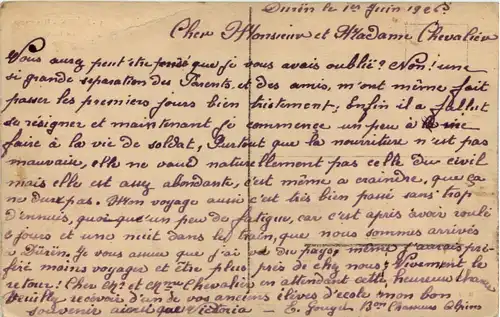 Durën le 1er Juin 1925
Cher Monsieur et Madame Chevalier
Vous avez peut être pensé que je vous avais oublié? Non! une
si grande separation des Parents, et des amis, m'ont même fait
passer les premiers jours bien tristement; Enfin il a fallut
se résigner et maintenant je commence un peu à me
faire à la vie de soldat, Surtout que la nourriture n'est pas
mauvaise, elle ne vaud naturellement pas celle du civil
mais elle est assez abondante, c'est même a craindre, que ça
ne dure pas. Mon voyage aussi c'est très bien passé sans trop
d'ennuis, quoique un peu de fatigue, car c'est après avoir roulé
jours et une nuit dans les train, que nous sommes arrivés
à Dürën. Je vous avoue que j'ai vu du pays, même j'aurais pré-
féré moins voyager et être plus près de chez nous; Vivement le
retour! Cher Mr et Mme Chevalier en attendant cette, heureuse
Veuillez recevoir d'un de vos anciens élèves d'école mon bon
souvenir ainsi que Victoria — E.